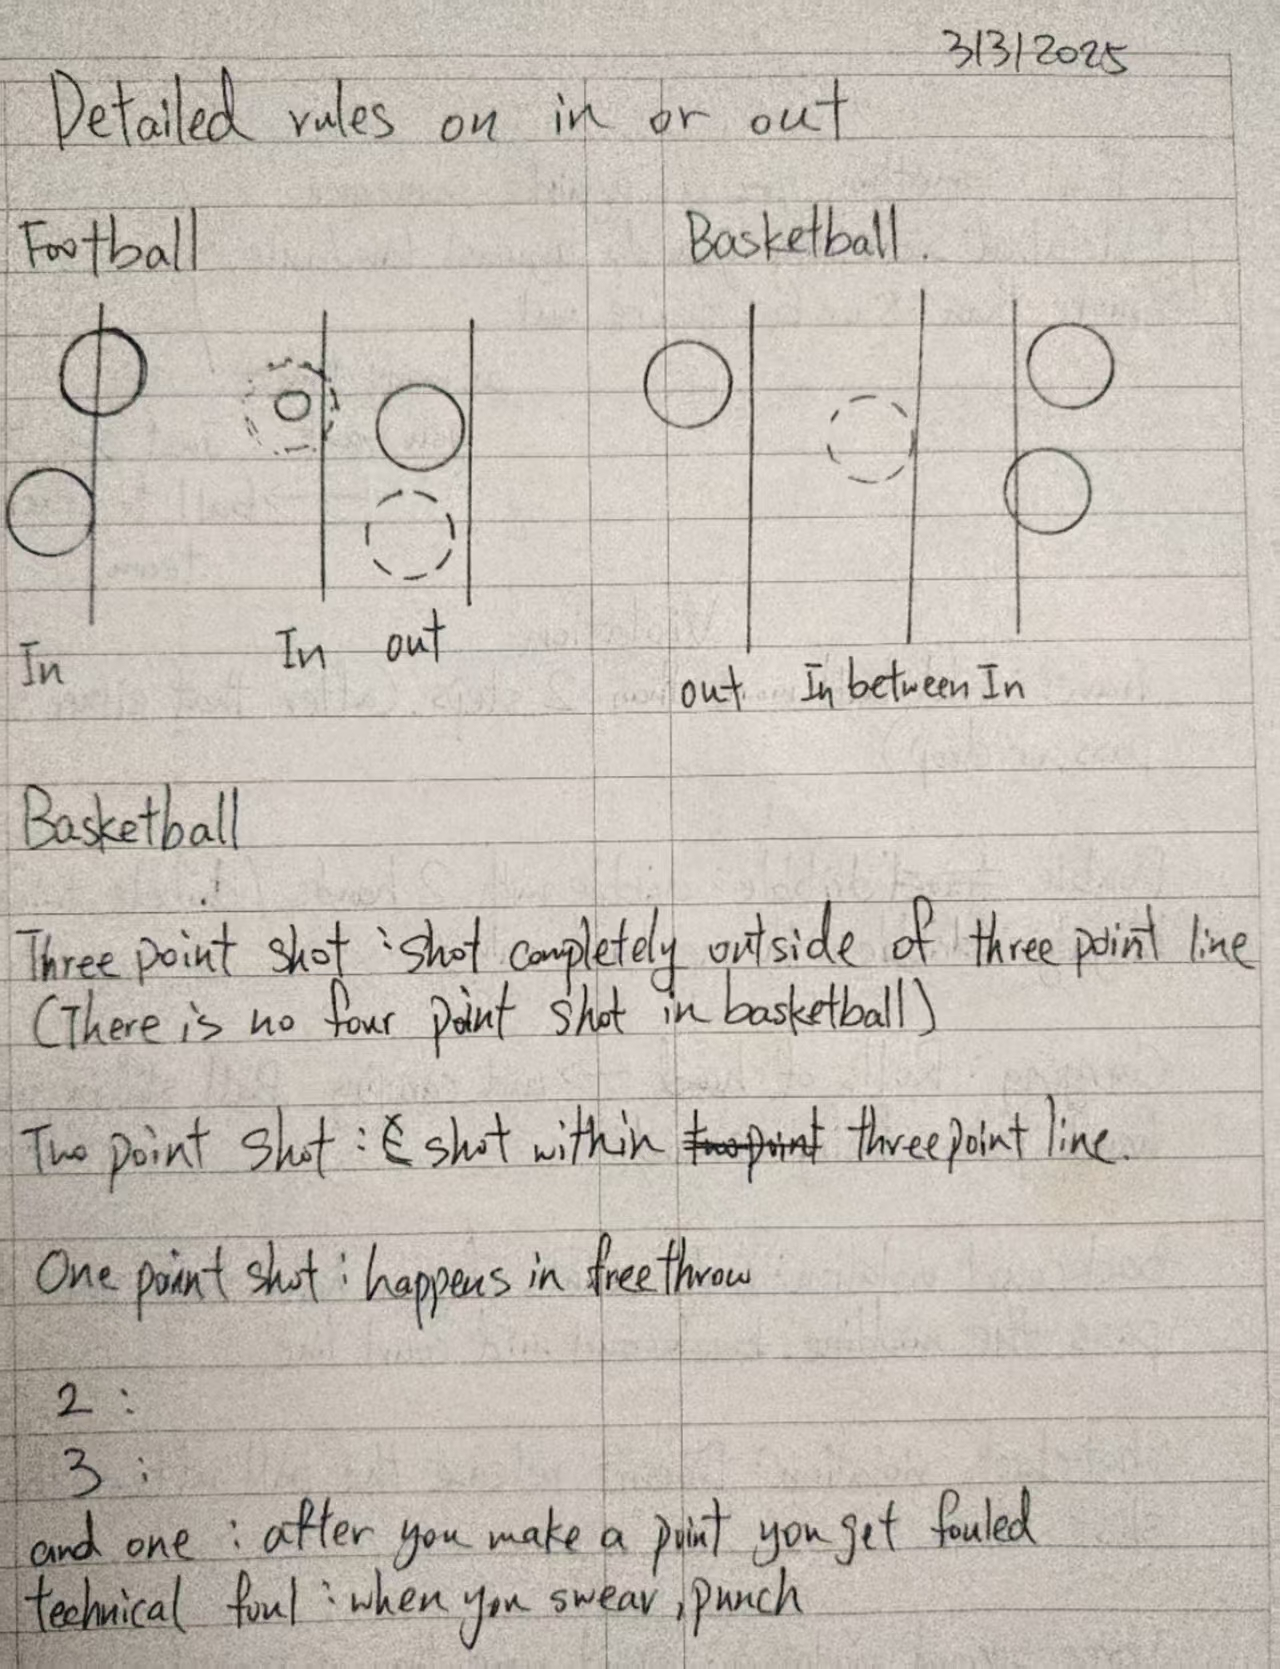 3/3/2025
Detailed rules on in or out
Football
Basketball.
In
In out
out In between In
Basketball
Three point shot : shot completely outside of three point line
(There is no four point shot in basketball)
Two point shot : shot within two point three point line.
One point shot : happens in free throw
2 :
3 :
and one : after you make a point you get fouled
technical foul : when you swear, punch